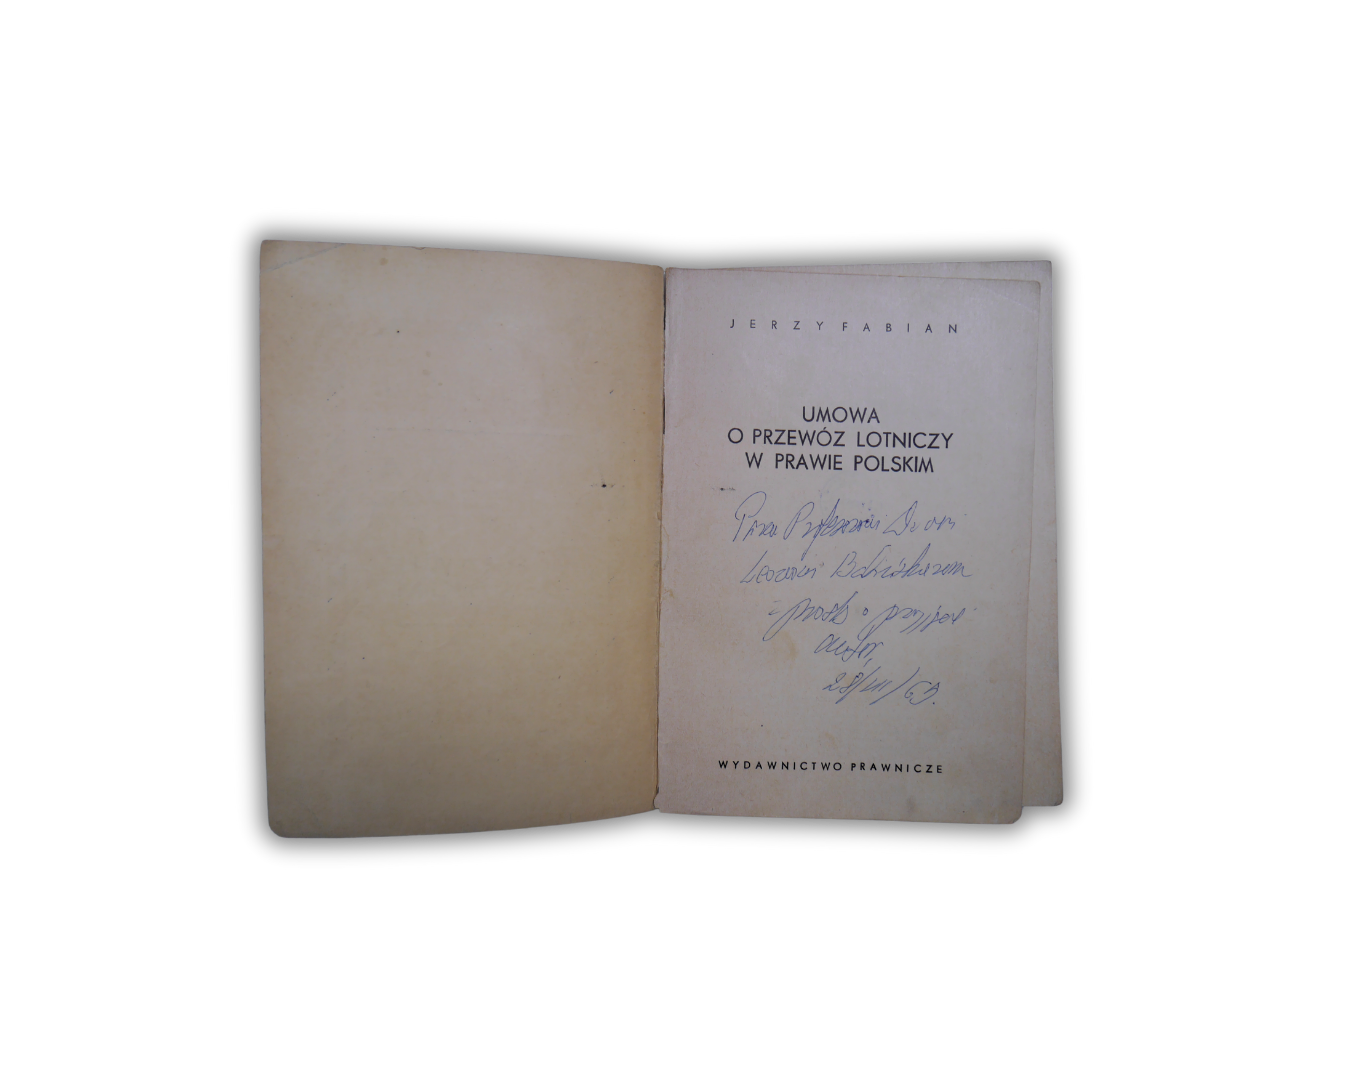 JERZY FABIAN
UMOWA
O PRZEWÓZ LOTNICZY
W PRAWIE POLSKIM
Panu Profesorowi
z prośbą o przyjęcie
autor
28/VII/
WYDAWNICTWO PRAWNICZE